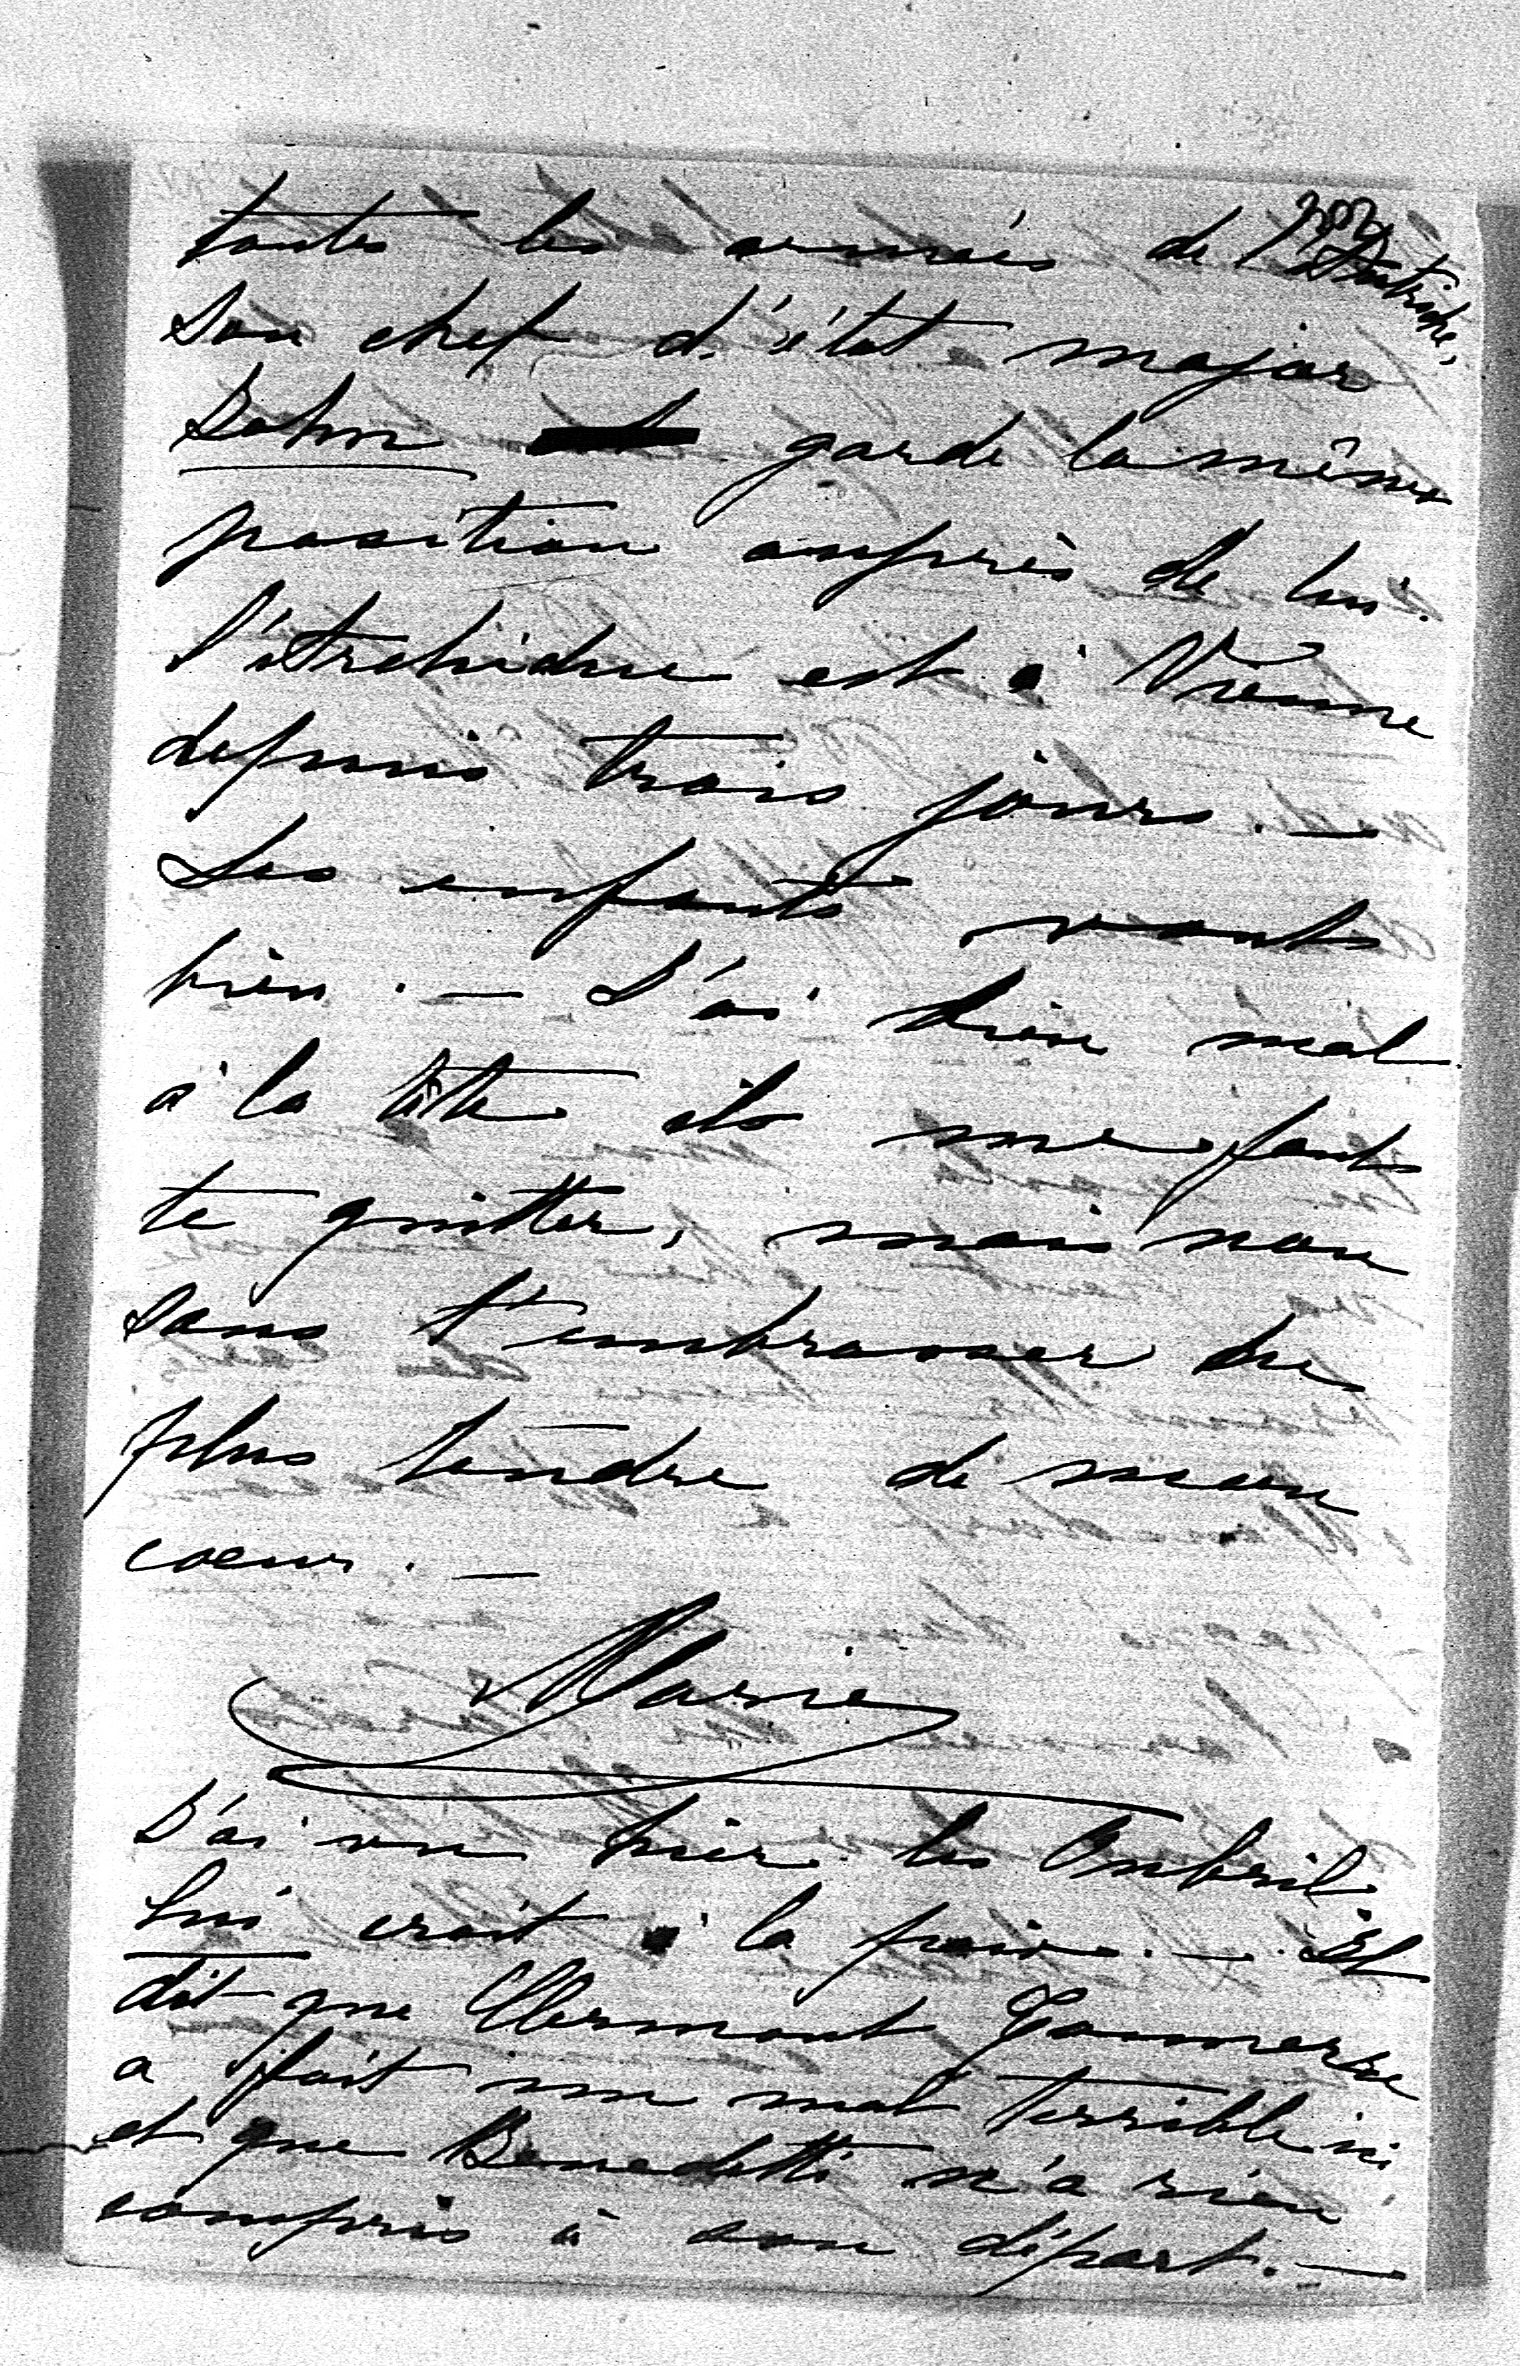 302
toutes les armées de l'Autriche,
Son chef d'état major
John garde la même
position auprès de lui.
l'Archiduc est à Vienne
depuis trois jours. —
Les enfants vont
bien. — J'ai bien mal
à la tête ils me font
te quitter, mais non
sans t'embrasser du
plus tendre de mon
coeur. —
Marie
J'ai vu hier les Oubril
Lui croit à la paix. — Et
dit que Clermont Tonnerre
a fait un mal terrible ici
et que Benedetti n'a rien
compris à son départ. —